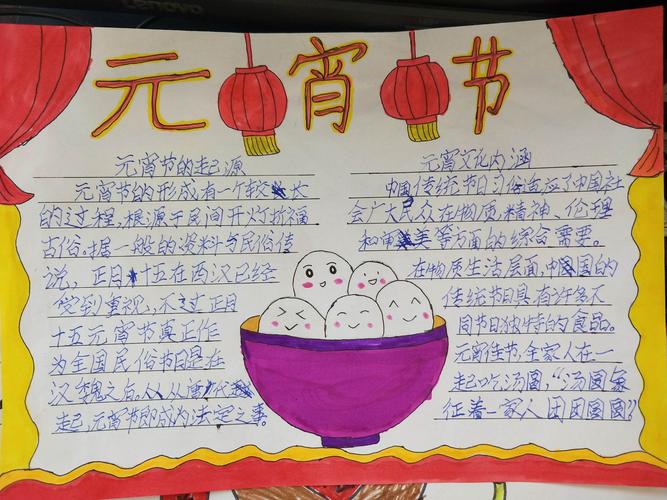 Lenovo
元宵节
元宵节的起源
元宵节的形成有一个较长
的过程,根源于民间开灯祈福
古俗.据一般的资料与民俗传
说,正月十五在西汉已经
受到重视,不过正月
十五元宵节真正作
为全国民俗节日是在
汉魏之后。从唐代
起,元宵节即成为法定之事。
元宵文化内涵
中国传统节日习俗适应了中国社
会广大民众在物质,精神、伦理
和审美等方面的综合需要。
在物质生活层面,中国的
传统节日具有许多不
同节日独特的食品。
元宵佳节,全家人在一
起吃汤圆,“汤圆象
征着一家人团团圆圆”